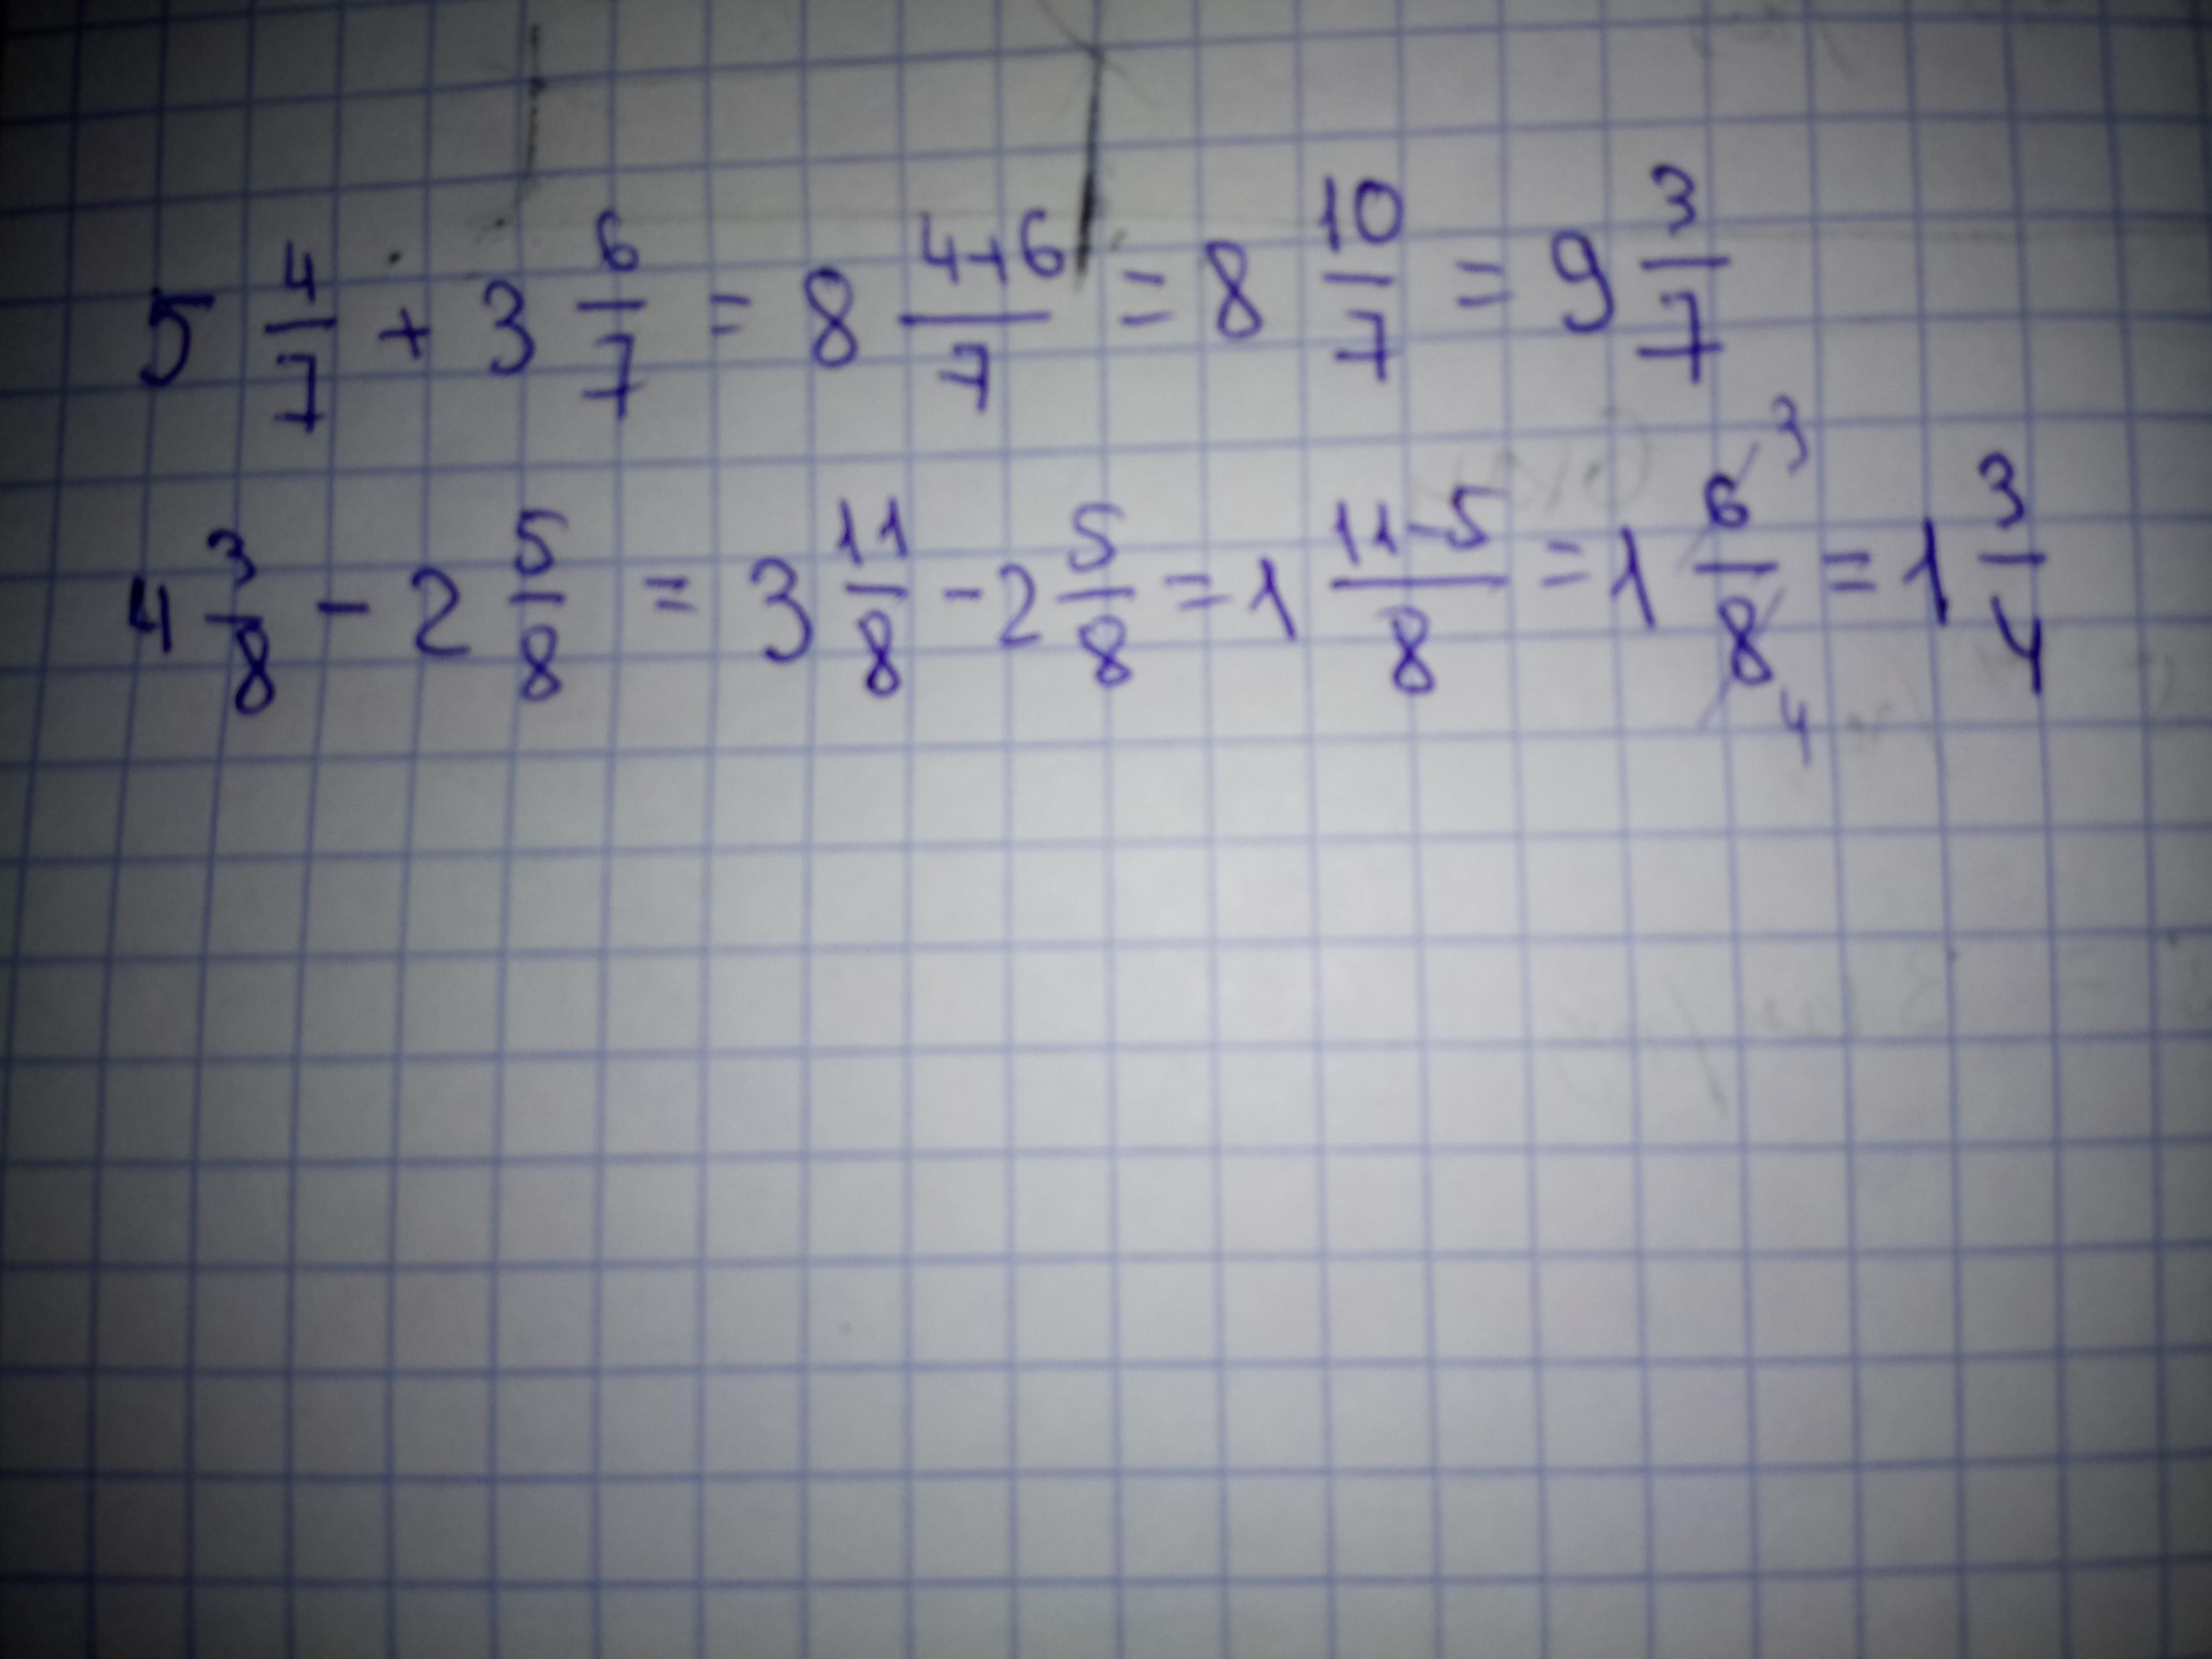 5 4/7 + 3 6/7 = 8 4+6/7 = 8 10/7 = 9 3/7
4 3/8 - 2 5/8 = 3 11/8 - 2 5/8 = 1 11-5/8 = 1 6/8 3 4 = 1 3/4